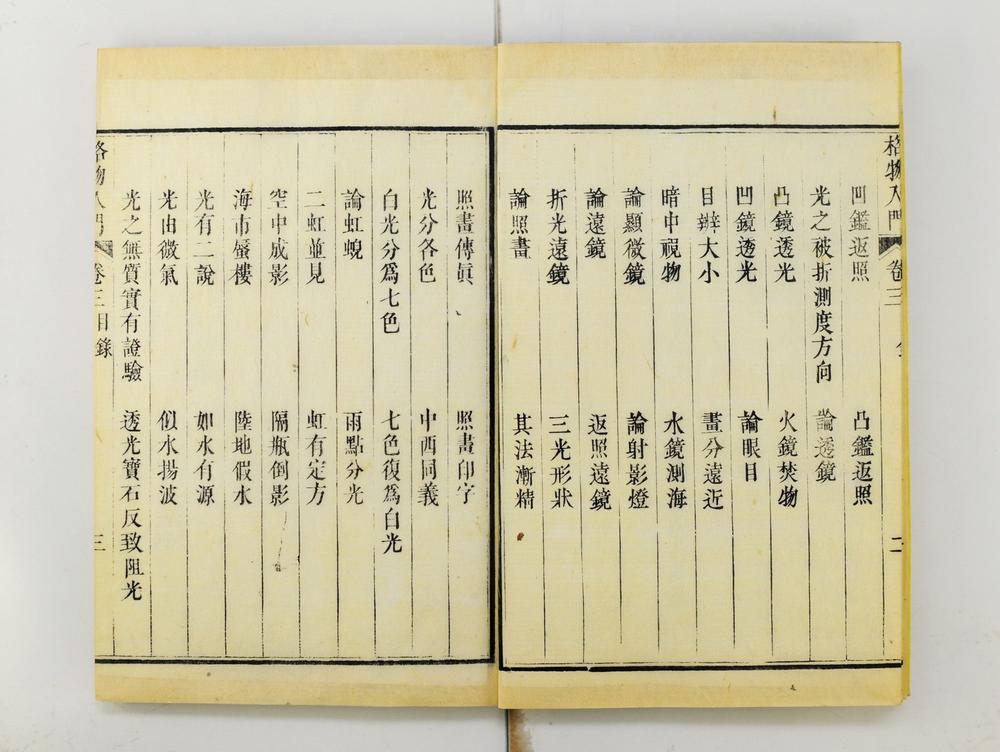 格物入門 卷三 二
凹鑑返照 凸鑑返照
光之被折測度方向 論透鏡
凸鏡透光 火鏡焚物
凹鏡透光 論眼目
目辨大小 畫分遠近
暗中視物 水鏡測海
論顯微鏡 論射影燈
論遠鏡 返照遠鏡
折光遠鏡 三光形狀
論照畫 其法漸精
照畫傳眞 照畫印字
光分各色 中西同義
白光分爲七色 七色復爲白光
論虹蜺 雨點分光
二虹並見 虹有定方
空中成影 隔瓶倒影
海市蜃樓 陸地假水
光有二說 如水有源
光由微氣 似水揚波
光之無質實有證驗 透光寶石反致阻光
格物入門 卷三目錄 三